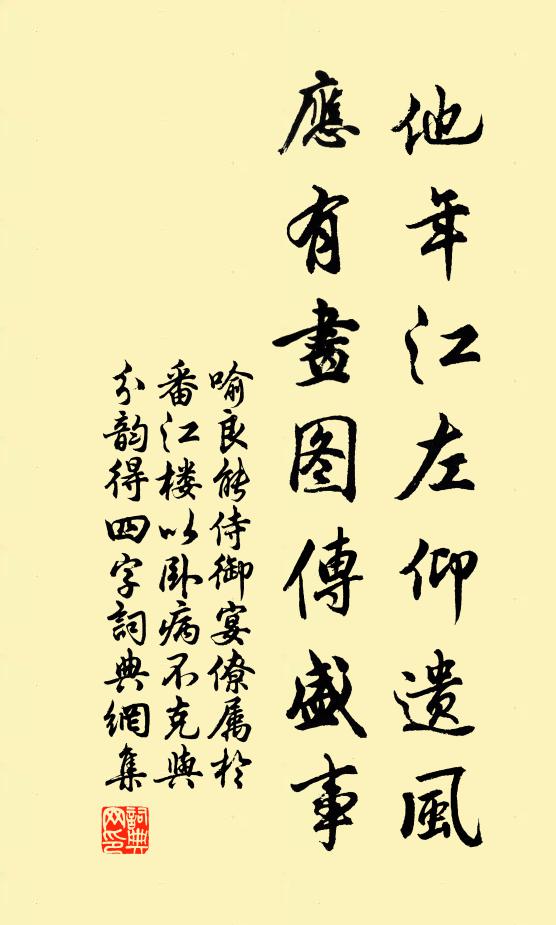 他年江左仰遗風
應有畫图傳盛事
喻良能侍御宴僚属於
番江楼以卧病不克與
分韵得四字詞典網集
詞典
网印